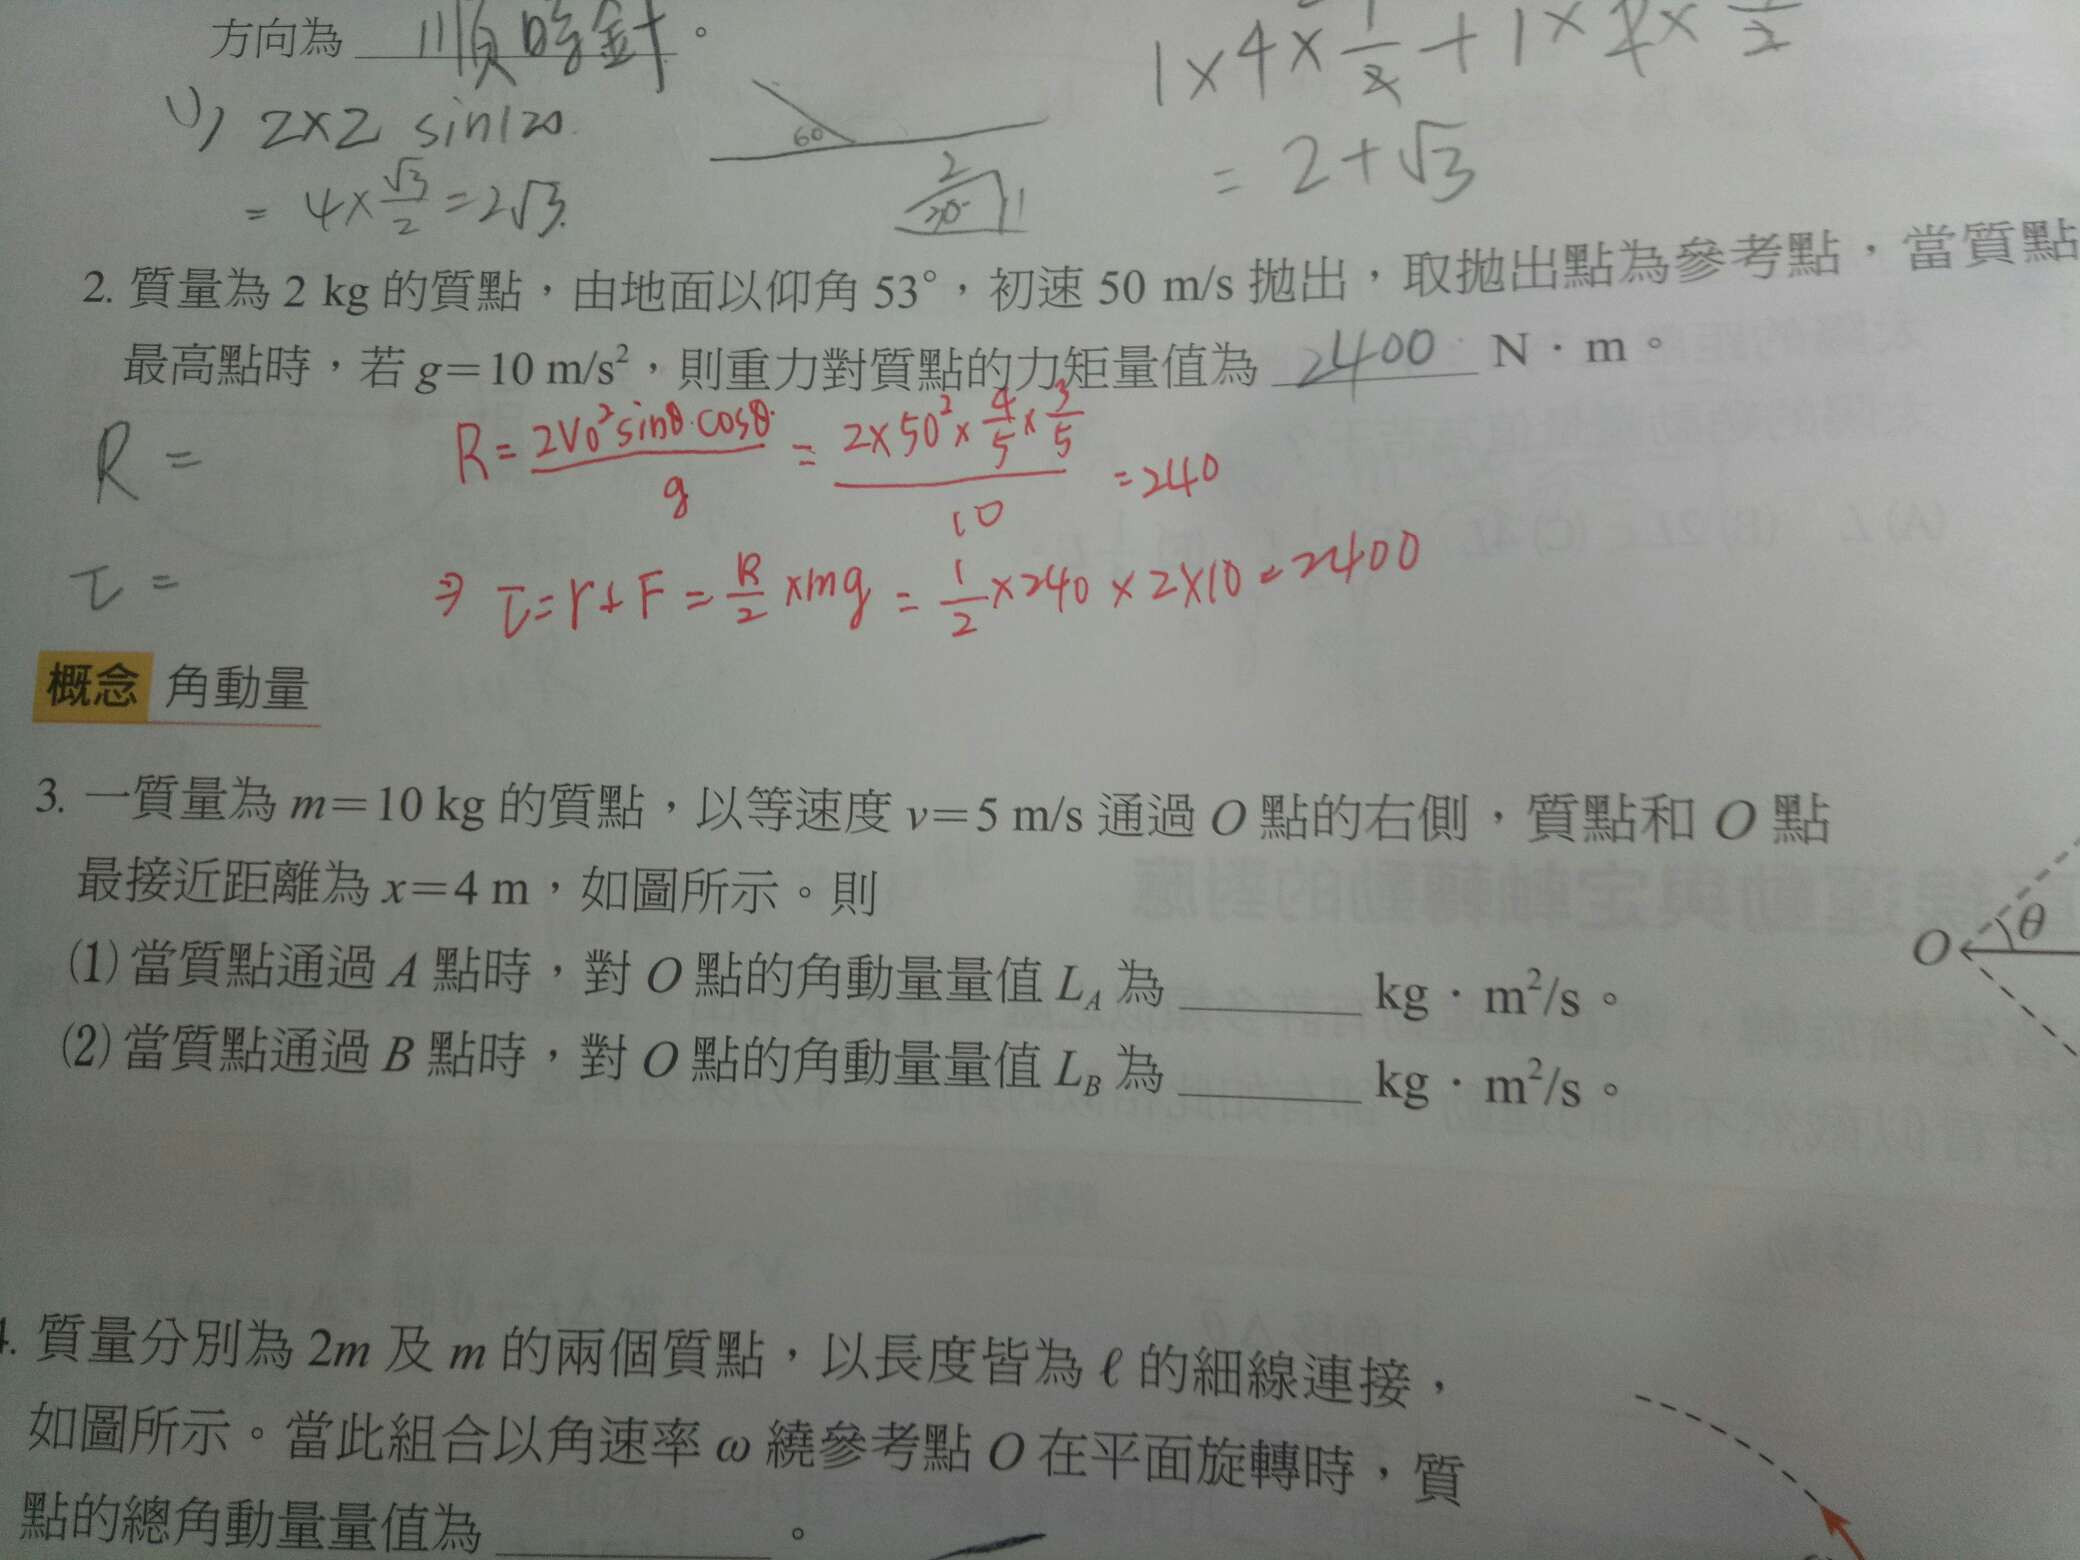 方向為 順時針 。
1×4×1/2+1×2×
(1) 2×2 sin120
60
= 2+√3
= 4×√3/2=2√3.
2
30° 1
2. 質量為 2 kg 的質點，由地面以仰角 53°，初速 50 m/s 拋出，取拋出點為參考點，當質點
最高點時，若 g=10 m/s²，則重力對質點的力矩量值為 2400 N·m。
R = R=2V₀²sinθ·cosθ/g = 2×50²×4/5×3/5/10 =240
τ = ⇒ τ=r⊥F=R/2×mg=1/2×240×2×10=2400
概念 角動量
3. 一質量為 m=10 kg 的質點，以等速度 v=5 m/s 通過 O 點的右側，質點和 O 點
最接近距離為 x=4 m，如圖所示。則
(1) 當質點通過 A 點時，對 O 點的角動量量值 L_A 為 ______ kg·m²/s。
(2) 當質點通過 B 點時，對 O 點的角動量量值 L_B 為 ______ kg·m²/s。
O θ
4. 質量分別為 2m 及 m 的兩個質點，以長度皆為 ℓ 的細線連接，
如圖所示。當此組合以角速率 ω 繞參考點 O 在平面旋轉時，質
點的總角動量量值為 ______ 。